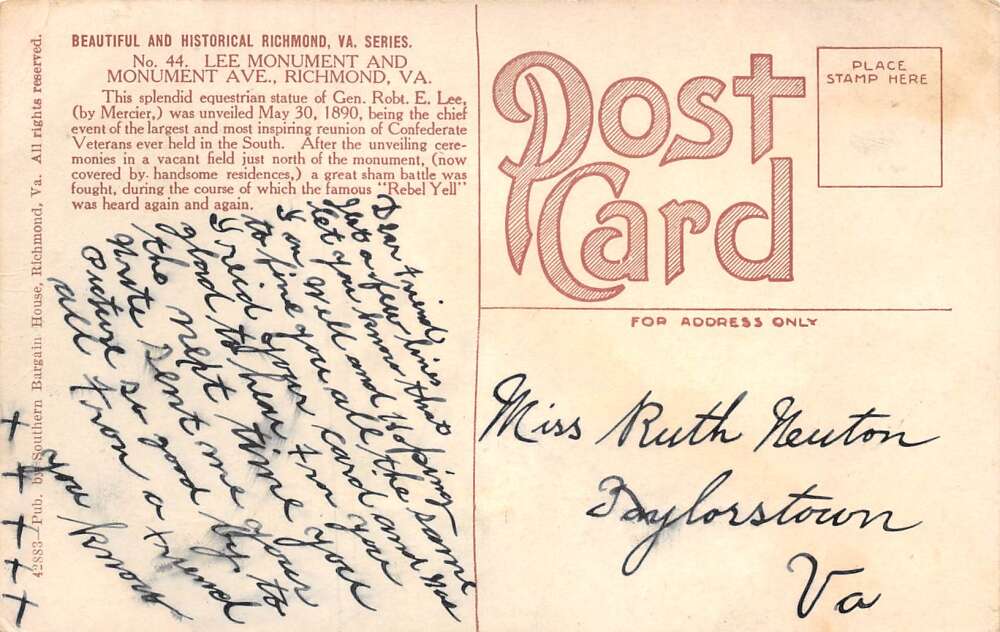 BEAUTIFUL AND HISTORICAL RICHMOND, VA. SERIES.
No. 44. LEE MONUMENT AND
MONUMENT AVE., RICHMOND, VA.
This splendid equestrian statue of Gen. Robt. E. Lee,
(by Mercier,) was unveiled May 30, 1890, being the chief
event of the largest and most inspiring reunion of Confederate
Veterans ever held in the South. After the unveiling cere-
monies in a vacant field just north of the monument, (now
covered by handsome residences,) a great sham battle was
fought, during the course of which the famous "Rebel Yell"
was heard again and again.
42883—Pub. by Southern Bargain House, Richmond, Va. All rights reserved.
Dear Friend
Just a few lines
let you know that
I am well and Hoping
to fine you all the same
I reid your card and was
glad to hear from you
the next time you
write sent me your
picture so good by to
all from a friend
you know
+ + + + +
Post
Card
PLACE
STAMP HERE
FOR ADDRESS ONLY
Miss Ruth Neuton
Taylorstown
Va